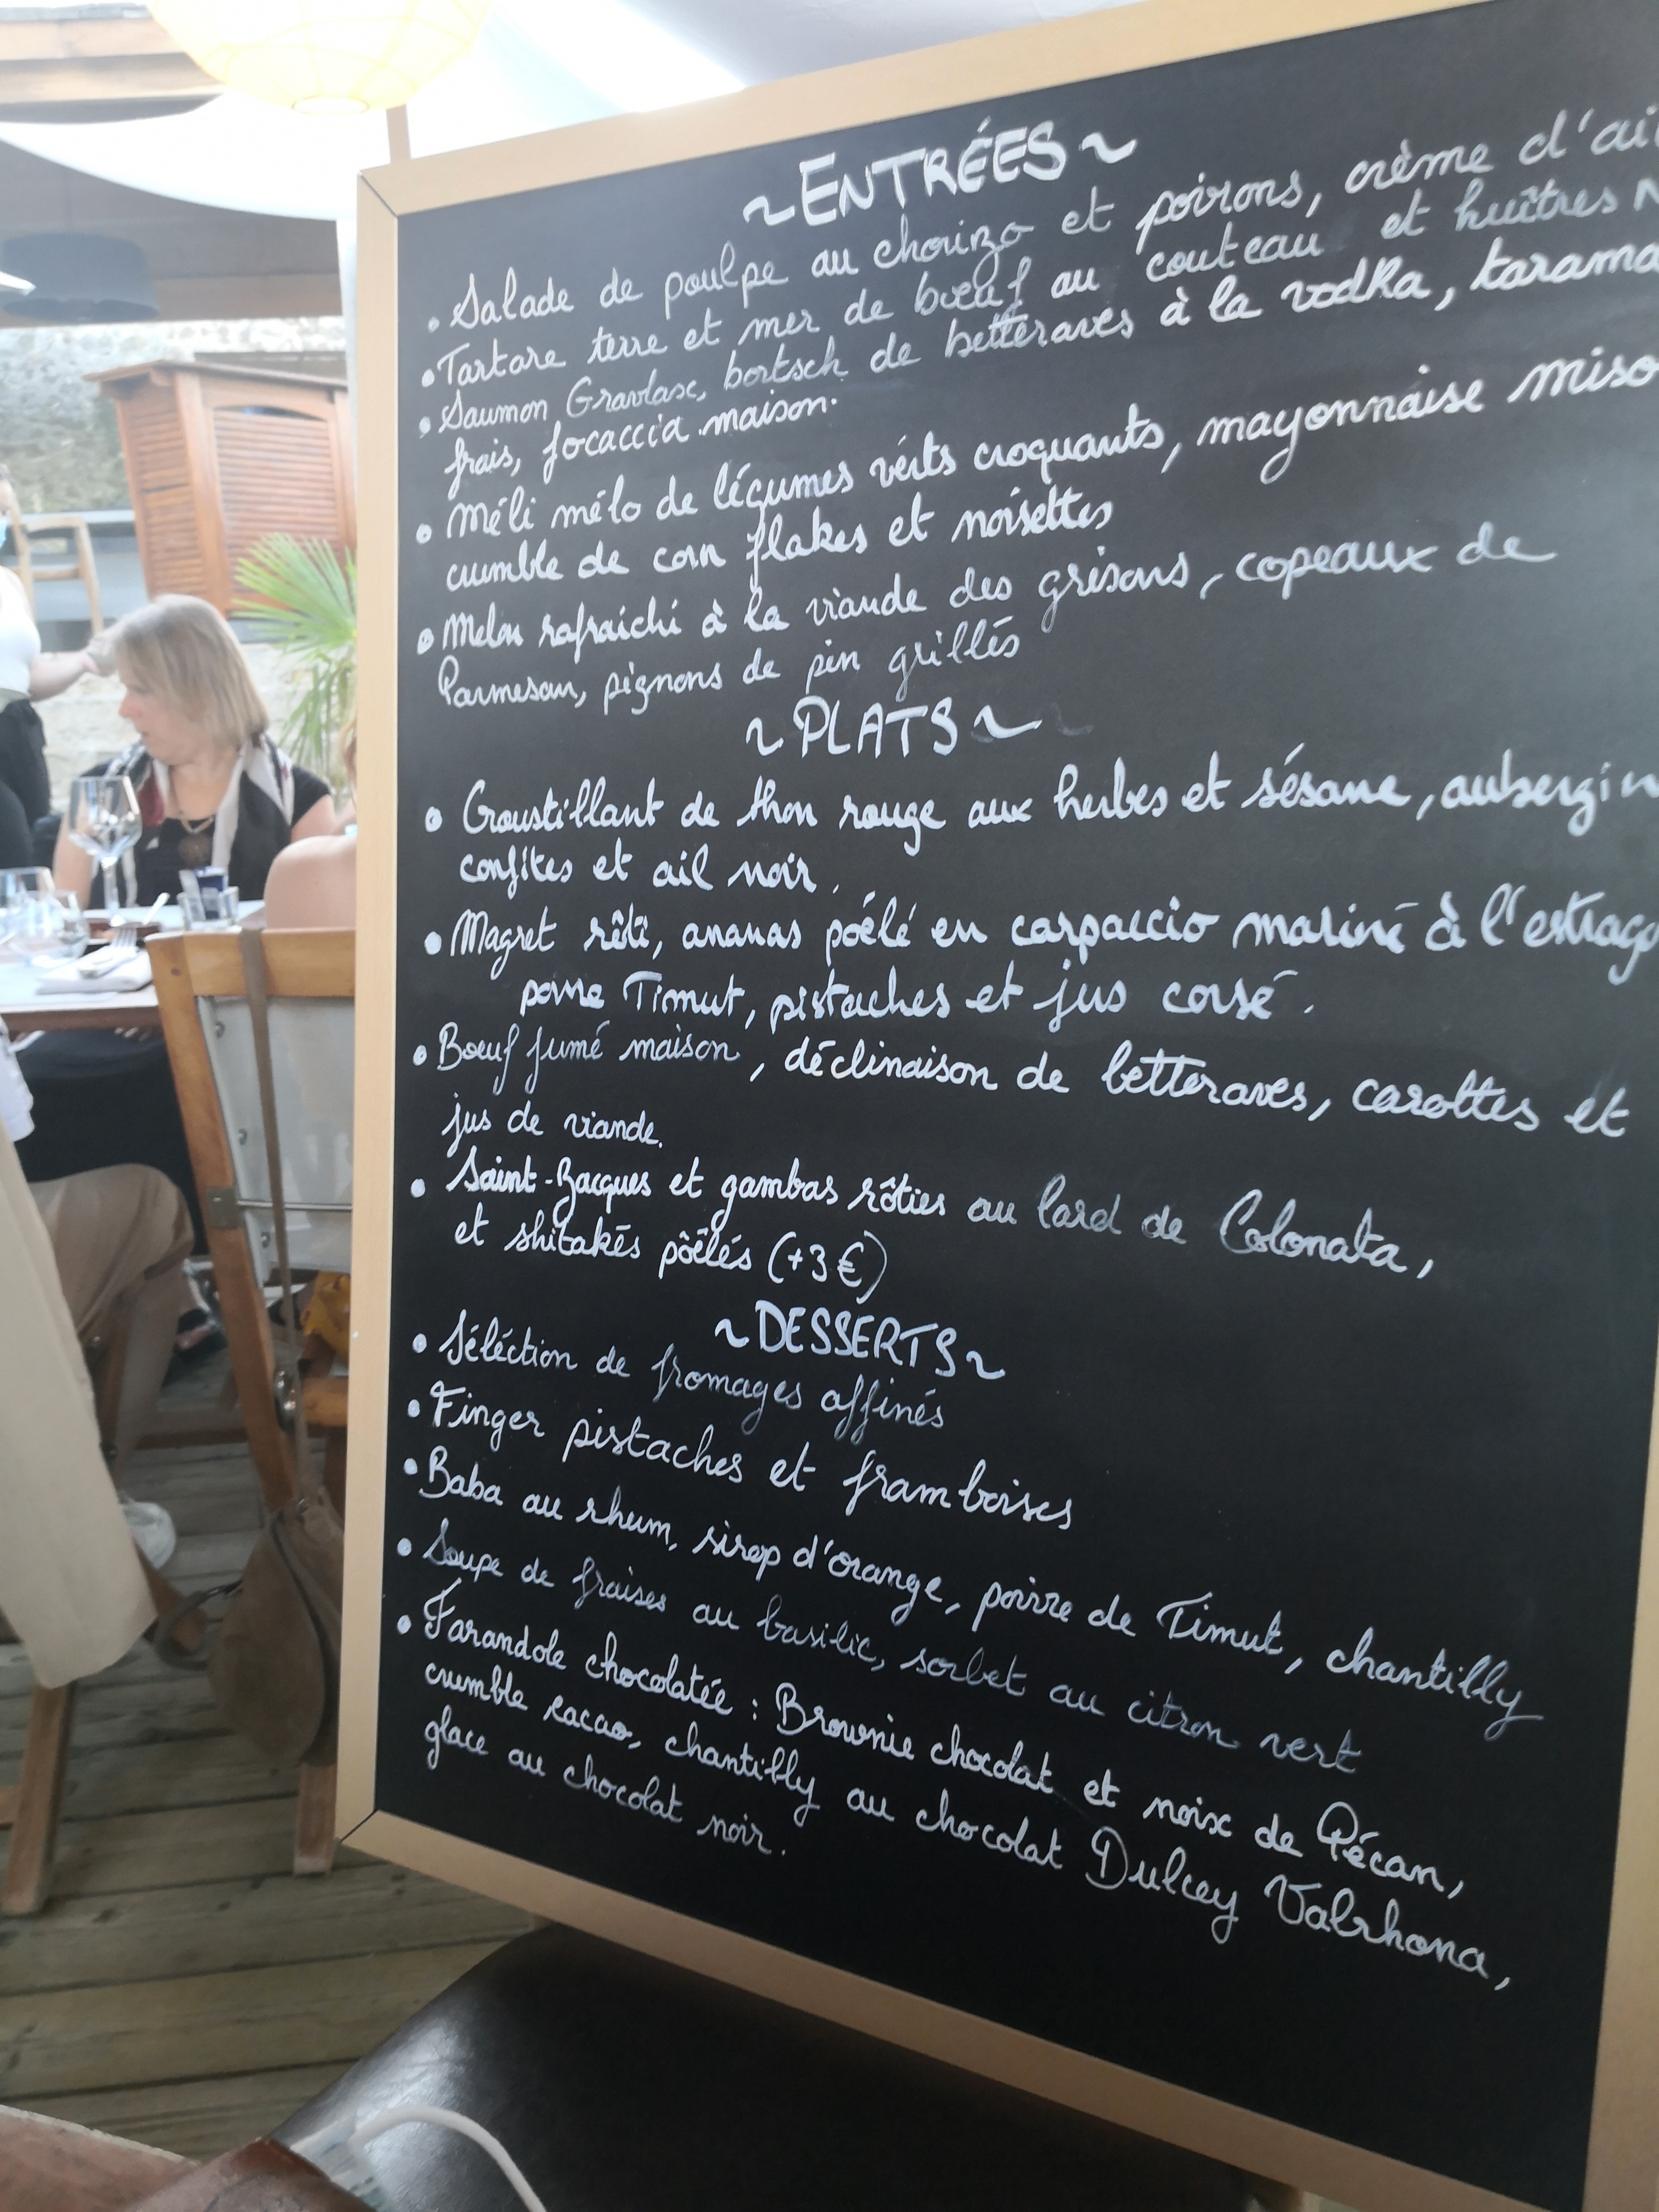 ~ENTRÉES~
• Salade de poulpe au chorizo et poivrons, crème d'ai
• Tartare terre et mer de bœuf au couteau et huîtres N
• Saumon Gravlax, bortsch de betteraves à la vodka, tarama
frais, focaccia maison.
• Méli mélo de légumes verts croquants, mayonnaise miso
crumble de corn flakes et noisettes
• Melon rafraichi à la viande des grisons, copeaux de
Parmesan, pignons de pin grillés
~PLATS~
• Croustillant de thon rouge aux herbes et sésame, aubergin
confites et ail noir.
• Magret rôti, ananas poêlé en carpaccio mariné à l'estrago
poivre Timut, pistaches et jus corsé.
• Bœuf fumé maison, déclinaison de betteraves, carottes et
jus de viande.
• Saint-Jacques et gambas rôties au lard de Colonata,
et shitakés pôêlés (+3€)
~DESSERTS~
• Séléction de fromages affinés
• Finger pistaches et framboises
• Baba au rhum, sirop d'orange, poivre de Timut, chantilly
• Soupe de fraises au basilic, sorbet au citron vert
• Farandole chocolatée : Brownie chocolat et noix de Pécan,
crumble cacao, chantilly au chocolat Dulcey Valrhona,
glace au chocolat noir.